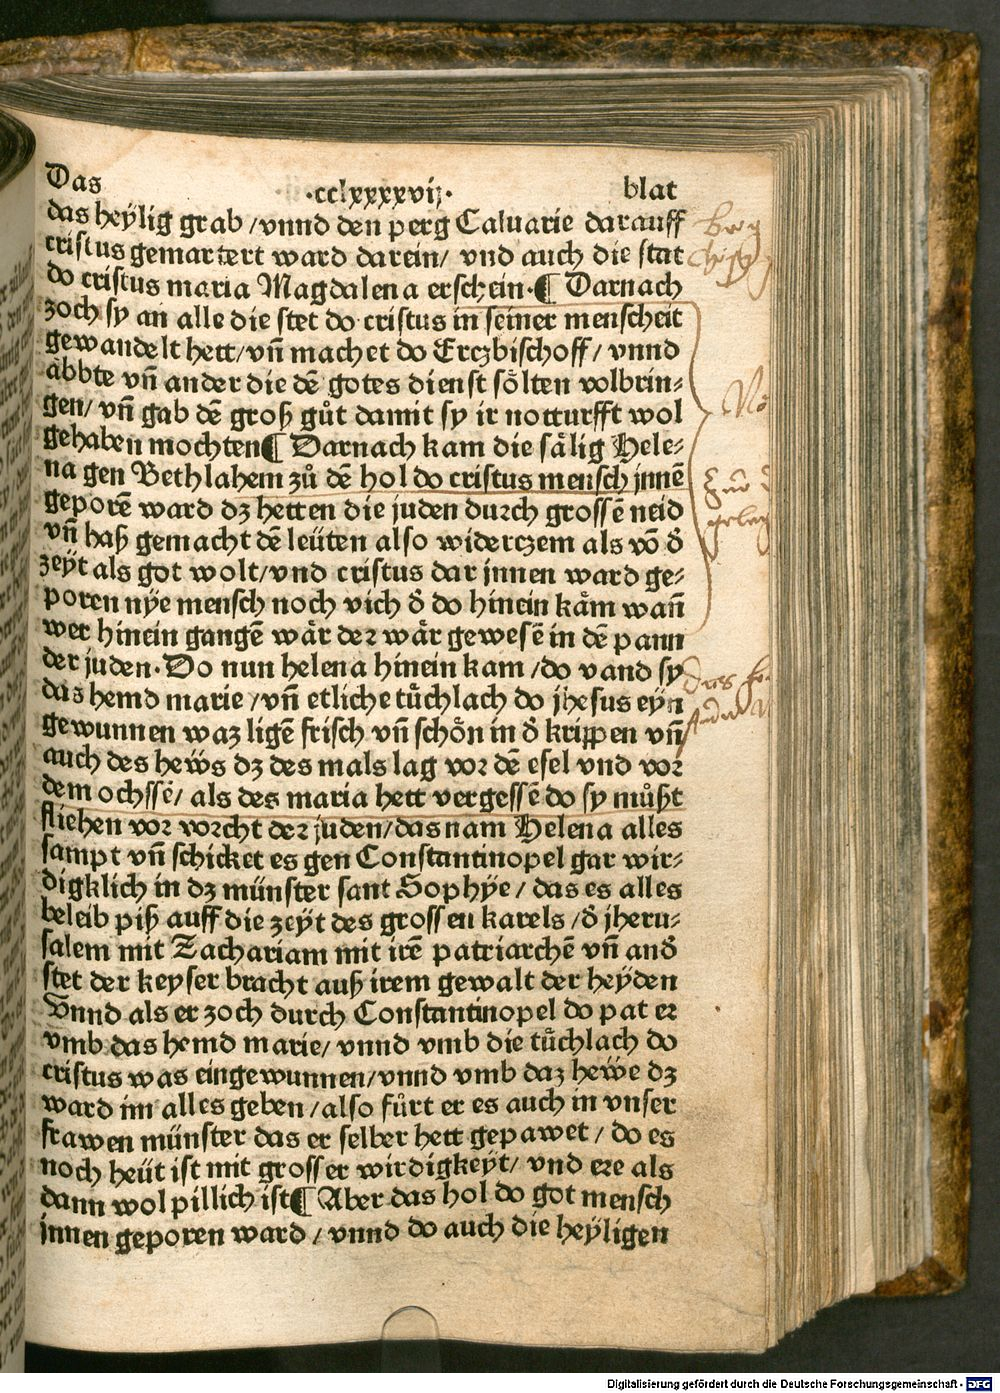 Das ·cclxxxxvij· blat
das heÿlig grab /vnnd den perg Caluarie darauff
cristus gemartert ward darein/ vnd auch die stat
do cristus maria Magdalena erschein·¶ Darnach
zoch sy an alle die stet do cristus in seiner menscheit
gewandelt hett/vñ machet do Erczbischoff/ vnnd
åbbte vñ ander die dē gotes dienst sôlten volbrin⸗
gen/ vñ gab dē groß gůt damit sy ir notturfft wol
gehaben mochten¶ Darnach kam die sålig Hele⸗
na gen Bethlahem zů dē hol do cristus mensch jnnē
geporē ward dz hetten die juden durch grossē neid
vñ haß gemacht dē leüten also widerczem als vō d̕
zeÿt als got wolt/vnd cristus dar jnnen ward ge⸗
poren nÿe mensch noch vich d̕ do hinein kåm wañ
wer hinein gangē wår der wår gewesē in dē pann
der juden·Do nun helena hinein kam /do vand sy
das hemd marie /vñ etliche tüchlach do jhesus eyn
gewunnen waz ligē frisch vñ schôn in d̕ krippen vñ
auch des hewͤs dz des mals lag vor dē esel vnd vor
dem ochssē/ als des maria hett vergessē do sy můßt
fliehen vor vorcht der juden/das nam Helena alles
sampt vñ schicket es gen Constantinopel gar wir⸗
digklich in dz münster sant Sophÿe / das es alles
beleib piß auff die zeÿt des grossen karels /d̕ jheru⸗
salem mit Zachariam mit irē patriarchē vñ and̕
stet der keyser bracht auß irem gewalt der heÿden
Vnnd als er zoch durch Constantinopel do pat er
vmb das hemd marie/ vnnd vmb die tüchlach do
cristus was eingewunnen/vnnd vmb daz hewͤe dz
ward im alles geben /also fůrt er es auch in vnser
frawen münster das er selber hett gepawet / do es
noch heüt ist mit grosser wirdigkeÿt/ vnd ere als
dann wol pillich ist¶ Aber das hol do got mensch
jnnen geporen ward / vnnd do auch die heÿligen
Digitalisierung gefördert durch die Deutsche Forschungsgemeinschaft - DFG